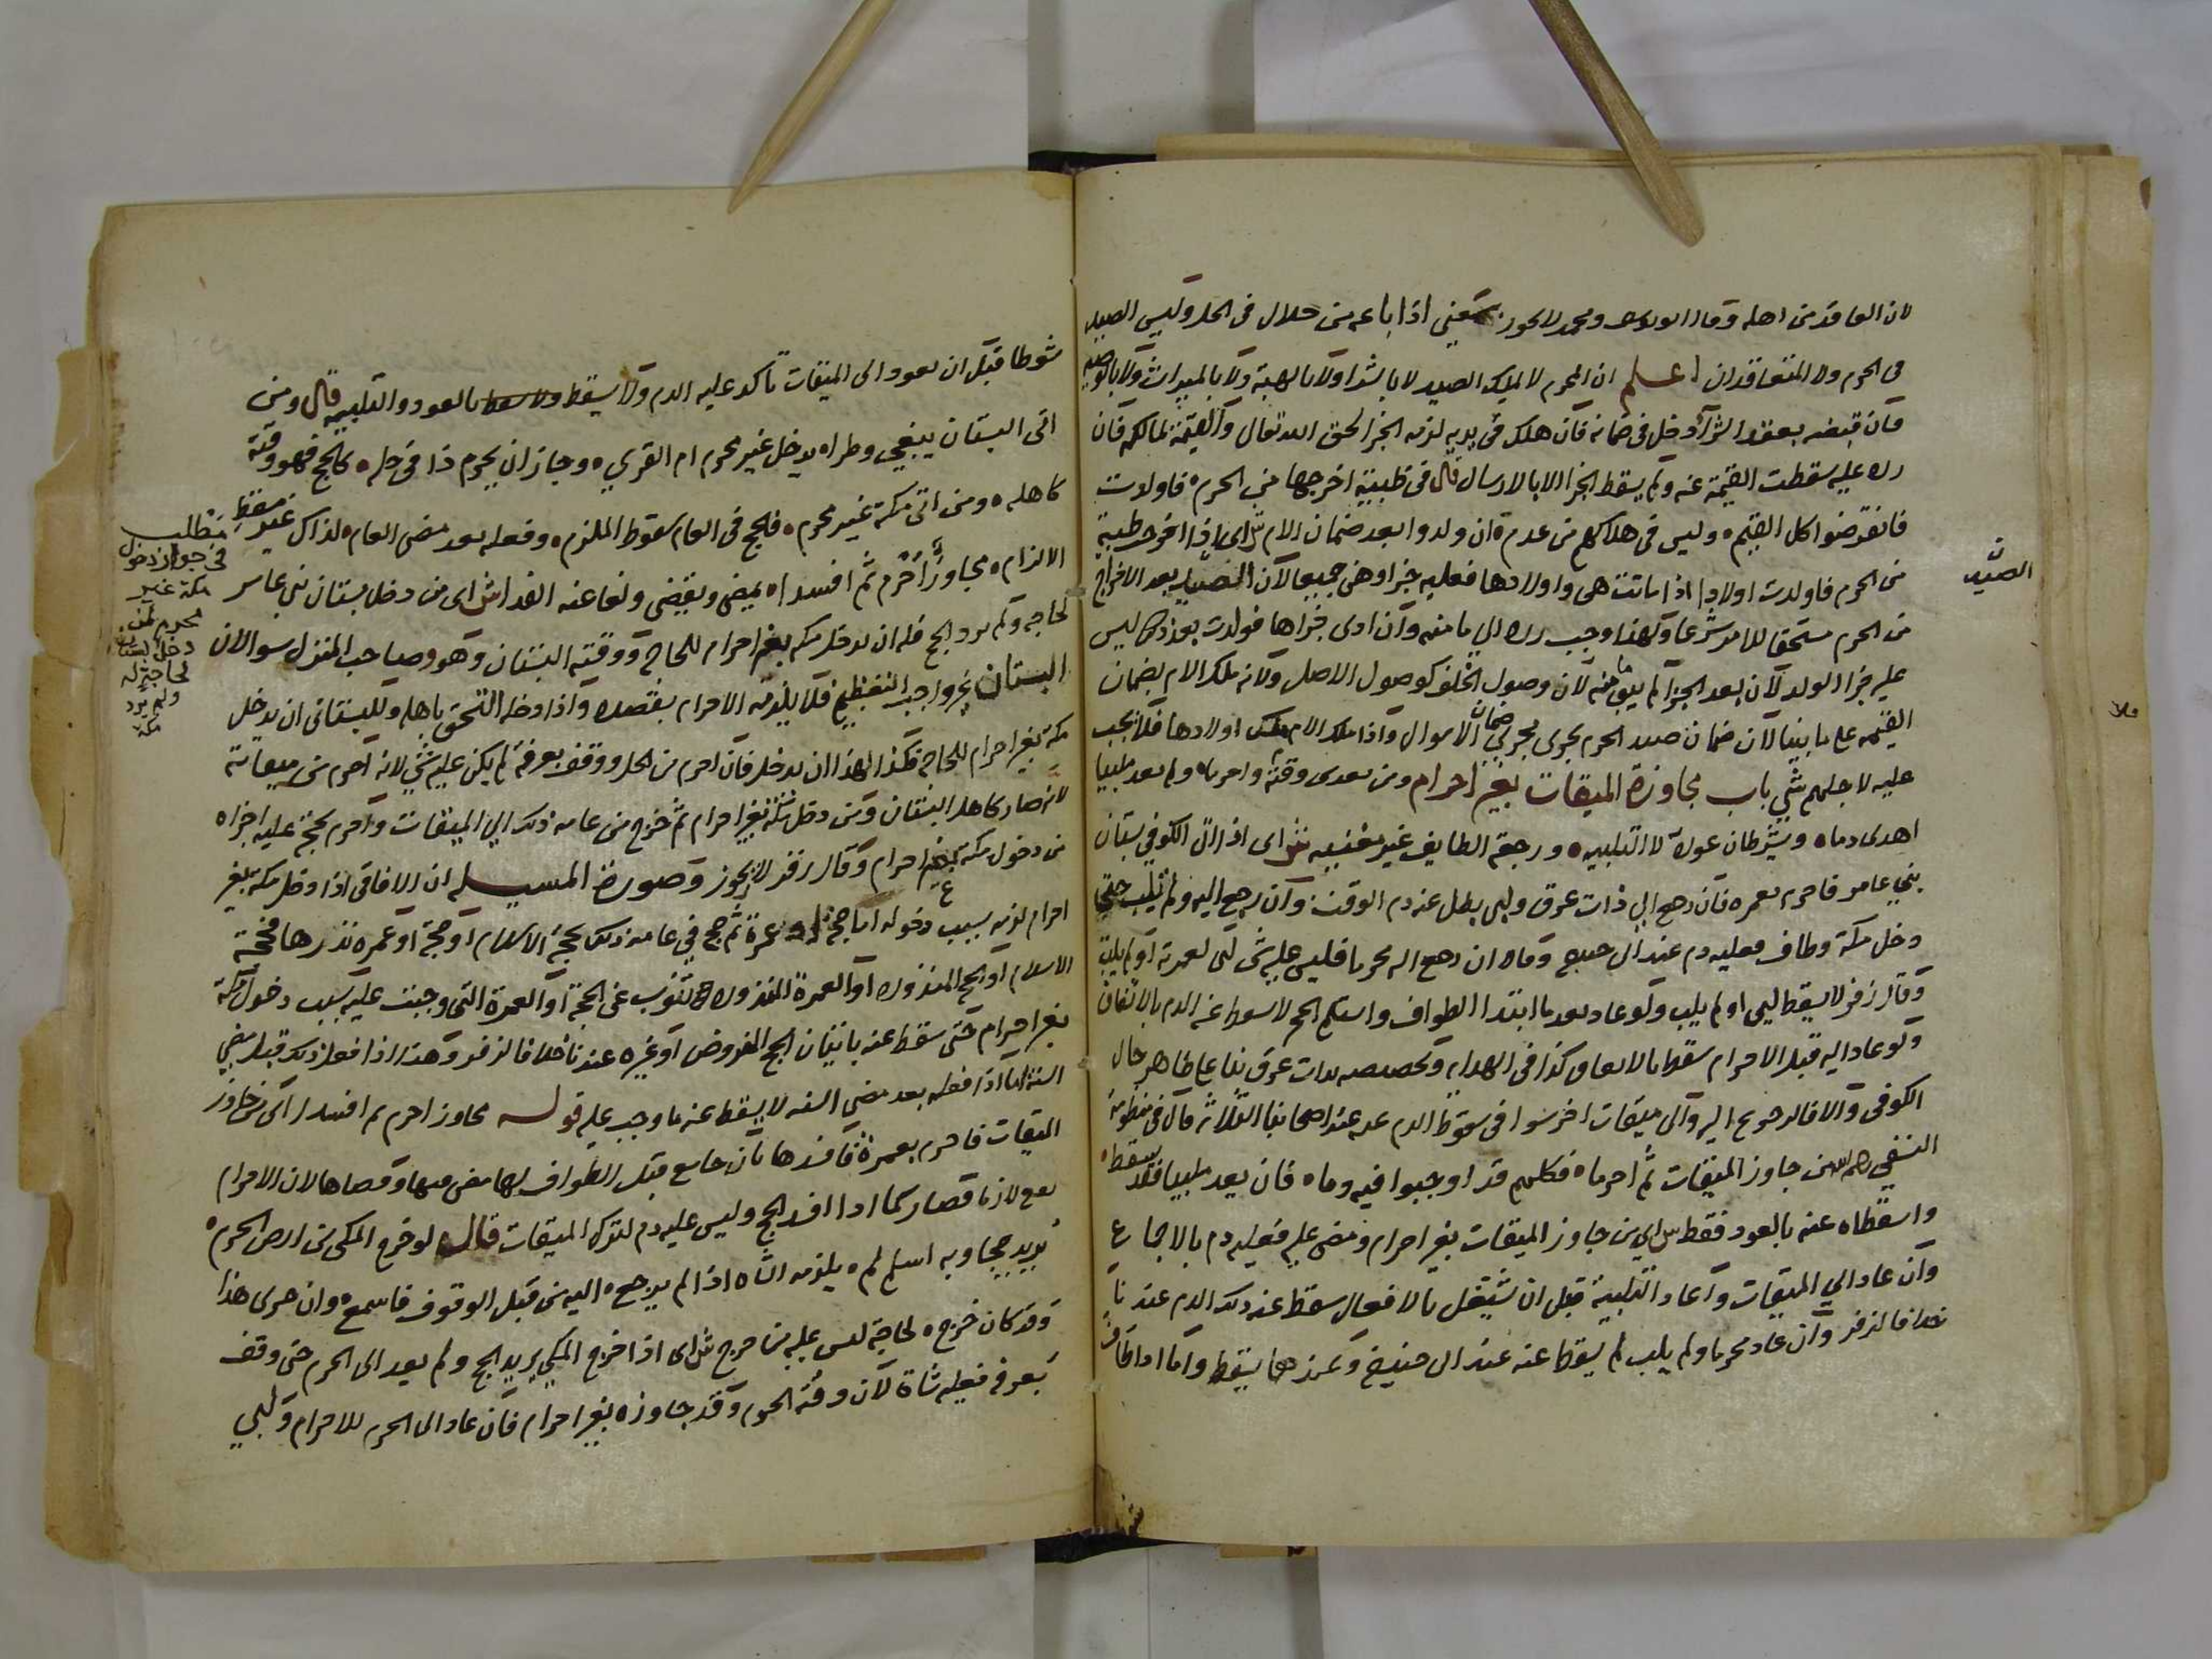 لان العاقد من اهله وقال ابو يوسف ومحمد لا يجوز يعني اذا باعه من حلال في الحل وليس الصيد
في الحرم ولا المتعاقدان اعلم ان المحرم لا يملك الصيد لا بالشرا ولا بالهبة ولا بالميراث ولا بالوصية
فان قبضه بعقد الشرآ دخل في ضمانه فان هلك في يديه لزمه الجزا لحق الله تعالى والقيمة لمالكه فان
رده عليه سقطت القيمة عنه ولم يسقط الجزا الا بالارسال قال في ظبية اخرجها من الحرم فاولدت
فانقرضوا كل القيم وليس في هلاكهم من عدم ان ولدوا بعد ضمان الام ش اى اذا اخرج ظبية
من الحرم فاولدت اولادا اذا ماتت هى واولادها فعليه جزاوهن جميعا لان الصيد بعد الاخراج
من الحرم مستحق للامن شرعا ولهذا وجب رده الي مامنه وان ادى جزاها فولدت بعد ذلك ليس
عليه جزا الولد لان بعد الجزا لم يبق امنه لان وصول الخلف كوصول الاصل ولانه ملك الام بضمان
القيمه على ما بينا لان ضمان صيد الحرم يجرى مجري ضمان الاموال واذا ملك الام ملك اولادها فلا يجب
عليه لاجلهم شي باب مجاوزة الميقات بغير احرام ومن تعدى وقته واحرما ولم يعد ملبيا
اهدى دما ويشرطان عوده لا التلبيه ورجعة الطايف غير مغنيه ش اى اذا اتى الكوفي بستان
بني عامر فاحرم بعمره فان رجع الي ذات عرق ولبى بطل عنه دم الوقت وان رجع اليه ولم يلب حتى
دخل مكة وطاف فعليه دم عند ابي حنيفة وقالا ان رجع اليه محرما فليس عليه شي لبى لعمرته او لم يلب
وقال زفر لا يسقط لبى او لم يلب ولو عاد بعد ما ابتدا الطواف واستلم الحجر لا يسقط عنه الدم بالاتفاق
ولو عاد اليه قبل الاحرام سقط بالاتفاق كذا في الهدايه وتخصيصه بذات عرق بنا على ظاهر حال
الكوفي والا فالرجوع اليه والى ميقات اخر سوا في سقوط الدم عنه عند اصحابنا الثلاثه قال في منظومة
النسفي رحمه الله من جاوز الميقات ثم احرما فكلهم قد اوجبوا فيه دما فان يعد ملبيا فقد سقط
واسقطاه عنه بالعود فقط ش اي من جاوز الميقات بغير احرام ومضى عليه فعليه دم بالاجماع
وان عاد الي الميقات واعاد التلبية قبل ان يشتغل بالافعال سقط عنه ذلك الدم عندنا
خلافا لزفر وان عاد محرما ولم يلب لم يسقط عنه عند ابى حنيفة وعندهما يسقط واما اذا طاف
الصيد
شوطا قبل ان يعود الى الميقات تاكد عليه الدم ولا يسقط بالعود والتلبيه قال ومن
اتى البستان يبغي وطرا يدخل غير محرم ام القري وجاز ان يحرم ذا في حله كالحج فهو وقته
كاهله ومن اتى مكة غير محرم فالحج في العام سقوط الملزم وفعله بعد مضي العام لذاك غير مسقط
الالزام مجاوز احرم ثم افسدا يمضى ويقضى ولغا عنه الفدا ش اى من دخل بستان بني عامر
لحاجه ولم يرد الحج فله ان يدخل مكه بغير احرام للحاجه ووقته البستان وهو وصاحب المنزل سوا لان
البستان غير واجب التعظيم فلا يلزمه الاحرام بقصده واذا دخله التحق باهله وللبستاني ان يدخل
مكة بغير احرام للحاجه فكذا لهذا ان يدخل فان احرم من الحل ووقف بعرفة لم يكن عليه شي لانه احرم من ميقاته
لانه صار كاهل البستان ومن دخل مكة بغير احرام ثم خرج من عامه ذلك الي الميقات واحرم بحجة عليه اجزاه
من دخول مكة بغير احرام وقال زفر لا يجوز وصورة المسيله ان الافاقي اذا دخل مكة بغير
احرام لزمه بسبب دخوله اما حجة او عمرة ثم حج في عامه ذلك بحجة الاسلام او حجة او عمره نذرها فحجة
الاسلام او الحج المنذوره او العمرة المنذوره تنوب عن الحجة او العمرة التي وجبت عليه بسبب دخول مكة
بغير احرام حتى سقط عنه باتيان الحج المفروض او غيره عندنا خلافا لزفر وهذا اذا فعل ذلك قبل مضي
السنة اما اذا فعله بعد مضي السنه لا يسقط عنه ما وجب عليه قوله مجاوز احرم ثم افسدا اى من جاوز
الميقات فاحرم بعمرة فافسدها بان جامع قبل الطواف لها مضى فيها وقضاها لان الاحرام
يقع لازما فصار كما اذا افسد الحج وليس عليه دم لترك الميقات قال لو خرج المكى من ارض الحرم
يريد حجا وبه اسلم لم يلزمه الشاه اذا لم يرجع اليه من قبل الوقوف فاسمع وان جرى هذا
وقد كان خرج لحاجة ليس عليه من حرج ش اى اذا خرج المكي يريد الحج ولم يعد الى الحرم حتى وقف
بعرفه فعليه شاة لان وقته الحرم وقد جاوزه بغير احرام فان عاد الى الحرم للاحرام ولبي
مطلب
في جواز دخول
مكة غير
محرم لمن
دخل البستان
لحاجة له
ولم يرد
مكة